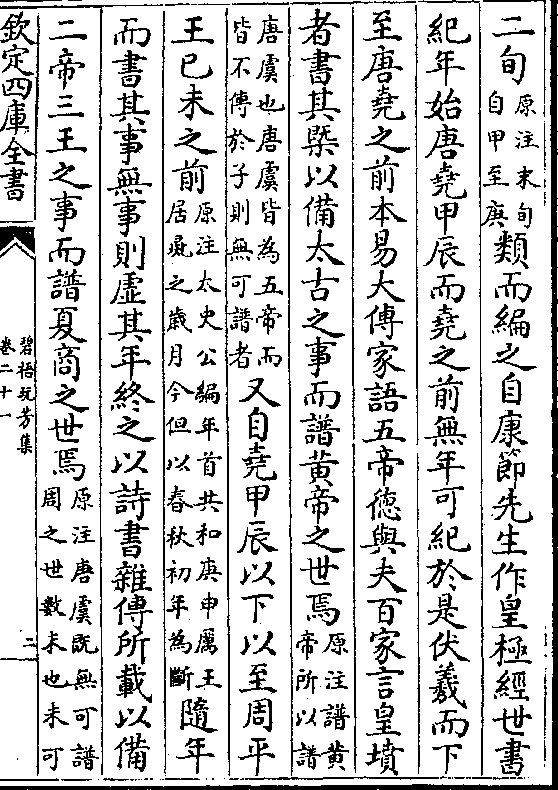 二旬原注末旬自甲至庚類而編之自康節先生作皇極經世書
紀年始唐堯甲辰而堯之前無年可紀於是伏羲而下
至唐堯之前本易大傳家語五帝德與夫百家言皇墳
者書其槩以備太古之事而譜黄帝之世焉原注譜黄帝所以譜
唐虞也唐虞皆為五帝而皆不傳於子則無可譜者又自堯甲辰以下以至周平
王已未之前原注太史公編年首共和庚申厲王居彘之歲月今但以春秋初年為斷隨年
而書其事無事則虛其年終之以詩書雜傳所載以備
二帝三王之事而譜夏商之世焉原注唐虞既無可譜周之世數未也未可
欽定四庫全書
碧梧玩芳集
卷二十一
二